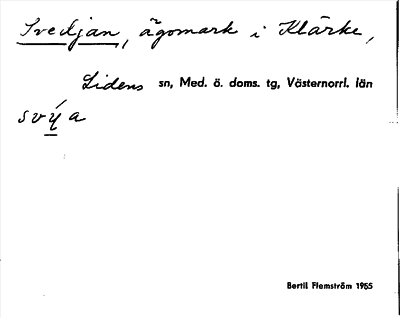 Svedjan, ägomark i Klärke,
Lidens sn, Med. ö. doms. tg, Västernorrl. län
svýa
Bertil Flemström 1965